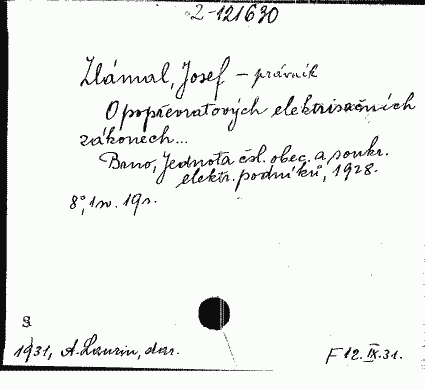 2-121630
Zlámal, Josef - právník
O popřevratových elektrisačních
zákonech...
Brno, Jednota čsl. obec. a soukr.
elektr. podniků, 1928.
8°, 1 sv. 19 s.
S
1931, A. Laurin, dar.
F 12. IX. 31.